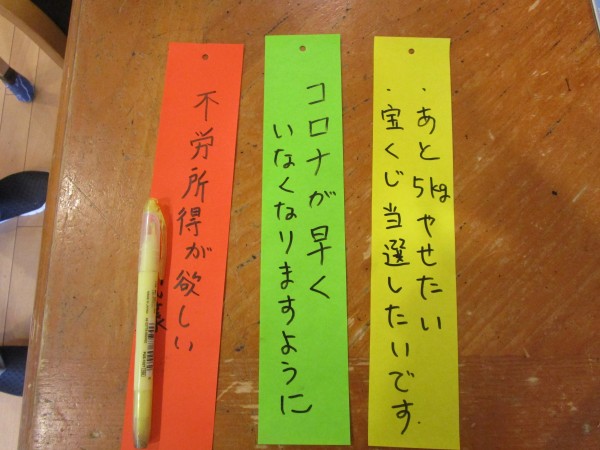 ・あと5kgやせたい
・宝くじ当選したいです。
コロナが早く
いなくなりますように
不労所得が欲しい